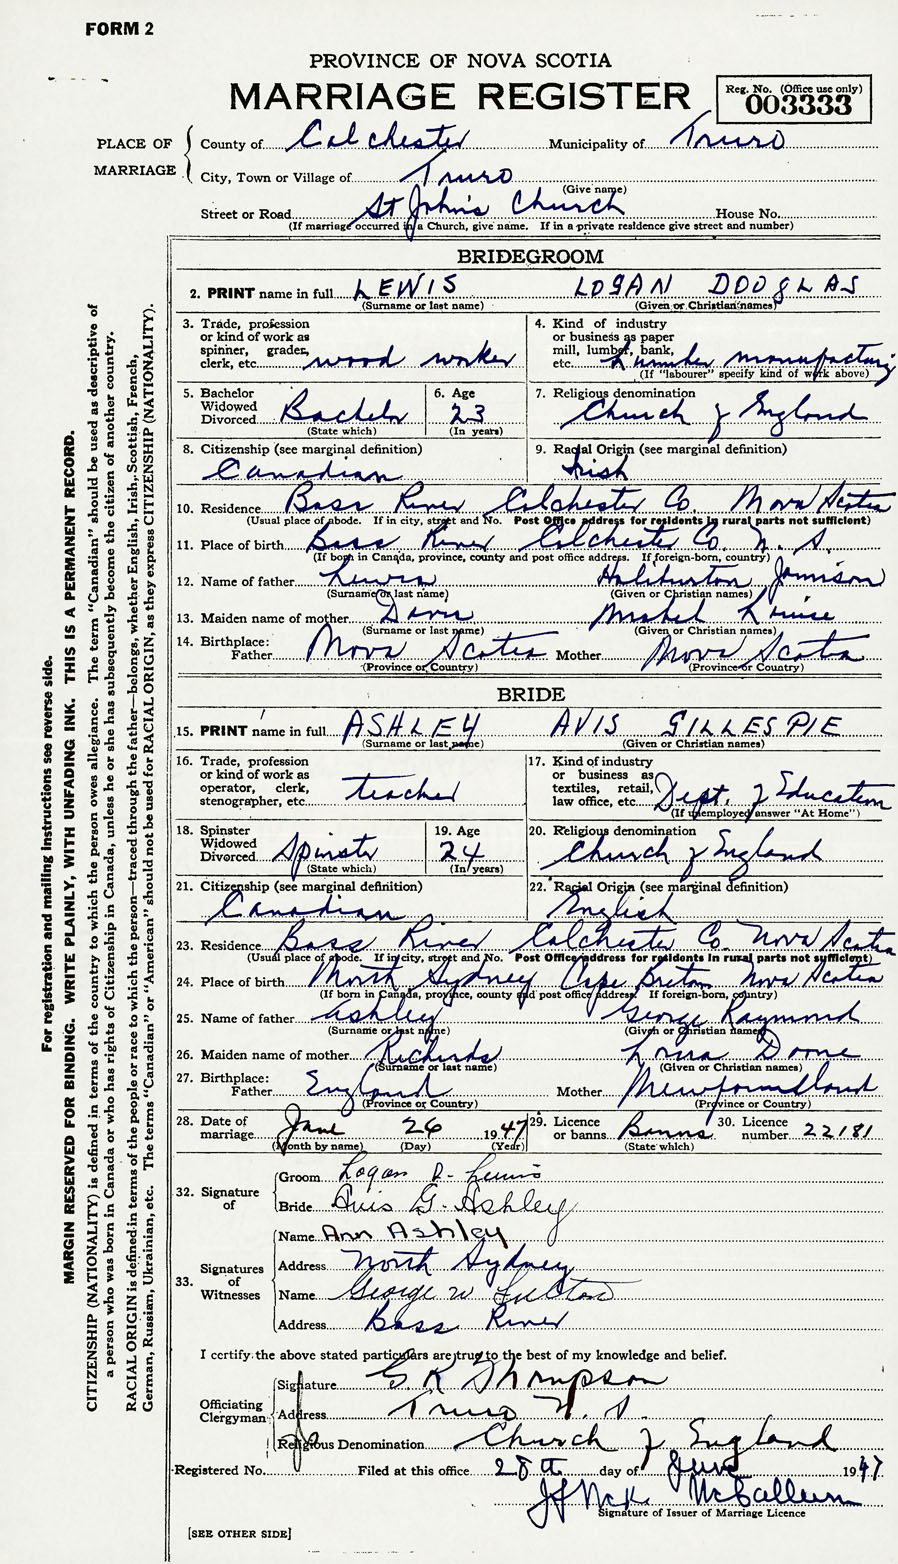 FORM 2
PROVINCE OF NOVA SCOTIA
MARRIAGE REGISTER
Reg. No. (Office use only)
003333
PLACE OF MARRIAGE
County of Colchester Municipality of Truro
City, Town or Village of Truro
(Give name)
Street or Road St John's Church House No.
(If marriage occurred in a Church, give name. If in a private residence give street and number)
BRIDEGROOM
2. PRINT name in full LEWIS LOGAN DOUGLAS
(Surname or last name) (Given or Christian names)
3. Trade, profession or kind of work as spinner, grader, clerk, etc. wood worker
4. Kind of industry or business as paper mill, lumber, bank, etc. Lumber manufacturing
(If "labourer" specify kind of work above)
5. Bachelor Widowed Divorced Bachelor
(State which)
6. Age 23
(In years)
7. Religious denomination Church of England
8. Citizenship (see marginal definition) Canadian
9. Racial Origin (see marginal definition) Irish
10. Residence Bass River Colchester Co. Nova Scotia
(Usual place of abode. If in city, street and No. Post Office address for residents in rural parts not sufficient)
11. Place of birth Bass River Colchester Co. N. S.
(If born in Canada, province, county and post office address. If foreign-born, country)
12. Name of father Lewis Haliburton Jamison
(Surname or last name) (Given or Christian names)
13. Maiden name of mother Davis Mabel Louise
(Surname or last name) (Given or Christian names)
14. Birthplace: Father Nova Scotia Mother Nova Scotia
(Province or Country) (Province or Country)
BRIDE
15. PRINT name in full ASHLEY AVIS GILLESPIE
(Surname or last name) (Given or Christian names)
16. Trade, profession or kind of work as operator, clerk, stenographer, etc. teacher
17. Kind of industry or business as textiles, retail, law office, etc. Dept. of Education
(If unemployed answer "At Home")
18. Spinster Widowed Divorced Spinster
(State which)
19. Age 24
(In years)
20. Religious denomination Church of England
21. Citizenship (see marginal definition) Canadian
22. Racial Origin (see marginal definition) English
23. Residence Bass River Colchester Co. Nova Scotia
(Usual place of abode. If in city, street and No. Post Office address for residents in rural parts not sufficient)
24. Place of birth North Sydney Cape Breton Nova Scotia
(If born in Canada, province, county and post office address. If foreign-born, country)
25. Name of father Ashley George Raymond
(Surname or last name) (Given or Christian names)
26. Maiden name of mother Richards Lorna Doone
(Surname or last name) (Given or Christian names)
27. Birthplace: Father England Mother Newfoundland
(Province or Country) (Province or Country)
28. Date of marriage June 26 1947
(Month by name) (Day) (Year)
29. Licence or banns Banns
(State which)
30. Licence number 22181
32. Signature of
Groom Logan D. Lewis
Bride Avis G. Ashley
33. Signatures of Witnesses
Name Ann Ashley
Address North Sydney
Name George W Fulton
Address Bass River
I certify the above stated particulars are true to the best of my knowledge and belief.
Officiating Clergyman
Signature G K Thompson
Address Truro N. S.
Religious Denomination Church of England
Registered No. Filed at this office 28th day of June 1947
McCallum
Signature of Issuer of Marriage Licence
[SEE OTHER SIDE]
For registration and mailing instructions see reverse side.
MARGIN RESERVED FOR BINDING. WRITE PLAINLY, WITH UNFADING INK. THIS IS A PERMANENT RECORD.
CITIZENSHIP (NATIONALITY) is defined in terms of the country to which the person owes allegiance. The term "Canadian" should be used as descriptive of
a person who was born in Canada or who has rights of Citizenship in Canada, unless he or she has subsequently become the citizen of another country.
RACIAL ORIGIN is defined in terms of the people or race to which the person—traced through the father—belongs, whether English, Irish, Scottish, French,
German, Russian, Ukrainian, etc. The terms "Canadian" or "American" should not be used for RACIAL ORIGIN, as they express CITIZENSHIP (NATIONALITY).